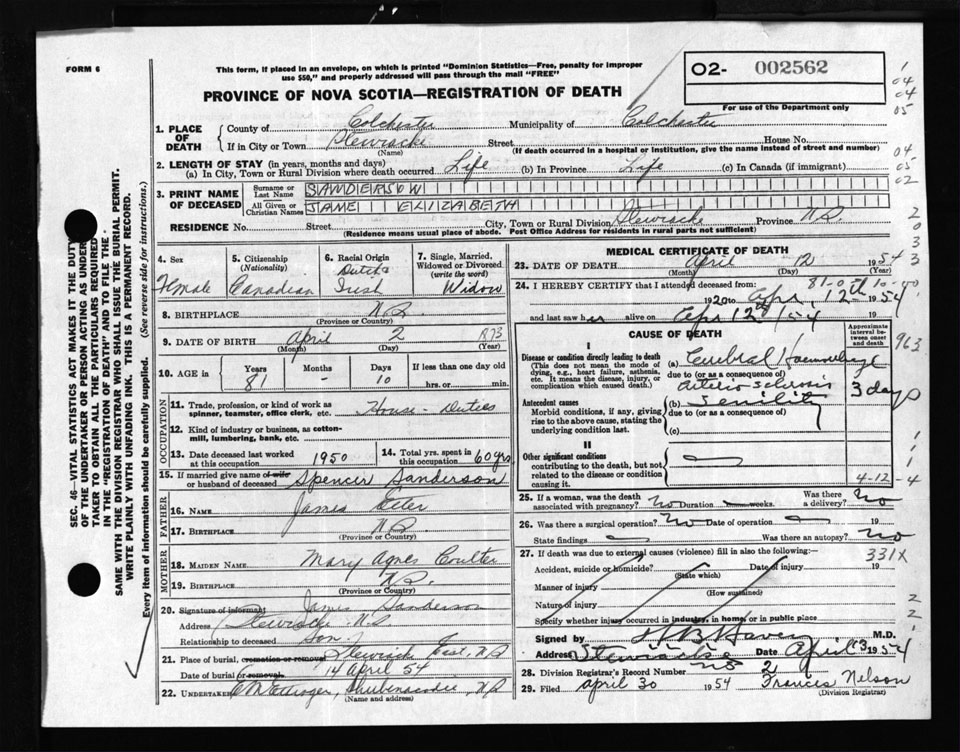 FORM 6
This form, if placed in an envelope, on which is printed "Dominion Statistics—Free, penalty for improper
use $50," and properly addressed will pass through the mail "FREE"
O2- 002562
For use of the Department only
PROVINCE OF NOVA SCOTIA—REGISTRATION OF DEATH
1. PLACE OF DEATH
County of Colchester Municipality of Colchester
If in City or Town Stewiacke Street House No.
(Name) (If death occurred in a hospital or institution, give the name instead of street and number)
2. LENGTH OF STAY (in years, months and days)
(a) In City, Town or Rural Division where death occurred Life (b) In Province Life (c) In Canada (if immigrant)
3. PRINT NAME OF DECEASED
Surname or Last Name SANDERSON
All Given or Christian Names JANE ELIZABETH
RESIDENCE No. Street City, Town or Rural Division Stewiacke Province N.S.
(Residence means usual place of abode. Post Office Address for residents in rural parts not sufficient)
4. Sex Female
5. Citizenship (Nationality) Canadian
6. Racial Origin Dutch & Irish
7. Single, Married, Widowed or Divorced (write the word) Widow
8. BIRTHPLACE N.S.
(Province or Country)
9. DATE OF BIRTH April 2 1873
(Month) (Day) (Year)
10. AGE in Years 81 Months - Days 10 If less than one day old hrs. or min.
OCCUPATION
11. Trade, profession, or kind of work as spinner, teamster, office clerk, etc. House-Duties
12. Kind of industry or business, as cotton-mill, lumbering, bank, etc.
13. Date deceased last worked at this occupation 1950
14. Total yrs. spent in this occupation 60 yrs
15. If married give name of wife or husband of deceased Spencer Sanderson
FATHER
16. NAME James Etter
17. BIRTHPLACE N.S.
(Province or Country)
MOTHER
18. MAIDEN NAME Mary Agnes Coulter
19. BIRTHPLACE N.S.
(Province or Country)
20. Signature of informant James Sanderson
Address Stewiacke N.S.
Relationship to deceased Son
21. Place of burial, cremation or removal Stewiacke East, N.S
Date of burial or removal. 14 April 54
22. UNDERTAKER Shubenacadie, N.S
(Name and address)
MEDICAL CERTIFICATE OF DEATH
23. DATE OF DEATH April 12 1954
(Month) (Day) (Year)
24. I HEREBY CERTIFY that I attended deceased from: 81-0-10-00
1920 to Apr. 12th 1954
and last saw her alive on Apr 12th /54
CAUSE OF DEATH
Approximate interval between onset and death
I
Disease or condition directly leading to death
(This does not mean the mode of dying, e.g., heart failure, asthenia, etc. It means the disease, injury, or complication which caused death.)
(a) Cerebral Haemorrhage
due to (or as a consequence of)
arterio sclerosis 3 days
Antecedent causes
Morbid conditions, if any, giving rise to the above cause, stating the underlying condition last.
(b) Senility
due to (or as a consequence of)
(c)
II
Other significant conditions
contributing to the death, but not related to the disease or condition causing it.
4-12-4
25. If a woman, was the death associated with pregnancy? No Duration weeks. Was there a delivery? No
26. Was there a surgical operation? No Date of operation 19
State findings Was there an autopsy? No
27. If death was due to external causes (violence) fill in also the following:— 331X
Accident, suicide or homicide? Date of injury 19
(State which)
Manner of injury
(How sustained)
Nature of injury
Specify whether injury occurred in industry, in home, or in public place
Signed by M.D.
Address Stewiacke Date April 13 1954
NS
28. Division Registrar's Record Number 2
29. Filed April 30 1954 Frances Nelson
(Division Registrar)
SEC. 46—VITAL STATISTICS ACT MAKES IT THE DUTY
OF THE UNDERTAKER OR PERSON ACTING AS UNDER-
TAKER TO OBTAIN ALL THE PARTICULARS REQUIRED
IN THE "REGISTRATION OF DEATH" AND TO FILE THE
SAME WITH THE DIVISION REGISTRAR WHO SHALL ISSUE THE BURIAL PERMIT.
WRITE PLAINLY WITH UNFADING INK. THIS IS A PERMANENT RECORD.
Every item of information should be carefully supplied. (See reverse side for instructions.)
1
04
04
05
04
05
02
2
0
3
3
3
963
1
1
1
4
2
2
1